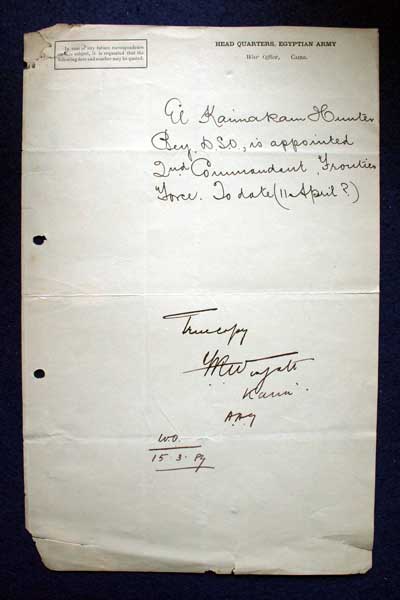 In case of any future correspondence
on this subject, it is requested that the
following date and number may be quoted.
HEAD QUARTERS, EGYPTIAN ARMY
War Office, Cairo.
El Kaimakam Hunter
Bey, DSO, is appointed
2nd. Commandant, Frontier
Force. To date (11 April ?)
True copy
FR Wingate
Kaim.
A.A.G
W.O.
15.3.89